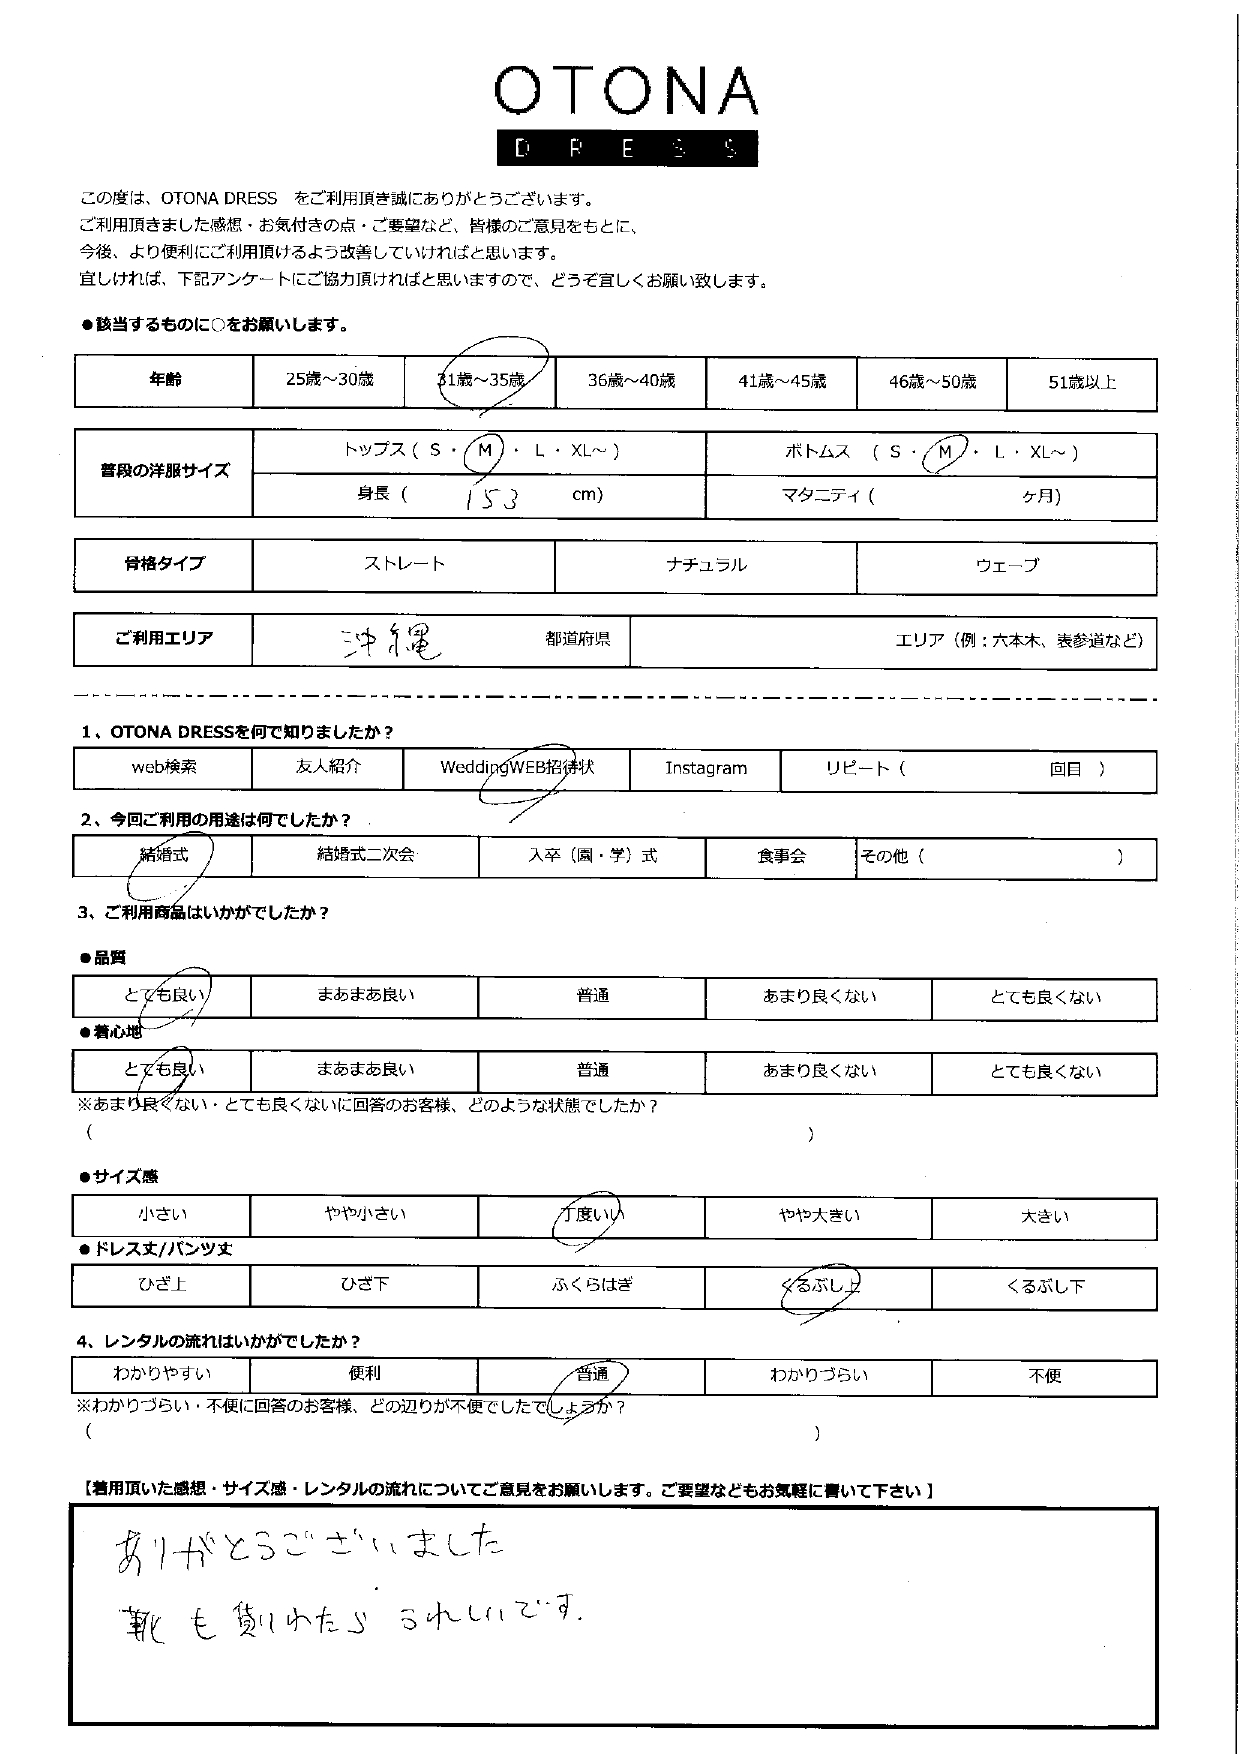 OTONA
DRESS
この度は、OTONA DRESS をご利用頂き誠にありがとうございます。
ご利用頂きました感想・お気付きの点・ご要望など、皆様のご意見をもとに、
今後、より便利にご利用頂けるよう改善していければと思います。
宜しければ、下記アンケートにご協力頂ければと思いますので、どうぞ宜しくお願い致します。
●該当するものに○をお願いします。
年齢 25歳～30歳 31歳～35歳 36歳～40歳 41歳～45歳 46歳～50歳 51歳以上
普段の洋服サイズ トップス ( S ・ M ・ L ・ XL～ ) ボトムス ( S ・ M ・ L ・ XL～ )
身長 ( 153 cm) マタニティ ( ヶ月)
骨格タイプ ストレート ナチュラル ウェーブ
ご利用エリア 沖縄 都道府県 エリア（例：六本木、表参道など）
1、OTONA DRESSを何で知りましたか？
web検索 友人紹介 WeddingWEB招待状 Instagram リピート ( 回目 )
2、今回ご利用の用途は何でしたか？
結婚式 結婚式二次会 入卒（園・学）式 食事会 その他 ( )
3、ご利用商品はいかがでしたか？
●品質
とても良い まあまあ良い 普通 あまり良くない とても良くない
●着心地
とても良い まあまあ良い 普通 あまり良くない とても良くない
※あまり良くない・とても良くないに回答のお客様、どのような状態でしたか？
( )
●サイズ感
小さい やや小さい 丁度いい やや大きい 大きい
●ドレス丈/パンツ丈
ひざ上 ひざ下 ふくらはぎ くるぶし上 くるぶし下
4、レンタルの流れはいかがでしたか？
わかりやすい 便利 普通 わかりづらい 不便
※わかりづらい・不便に回答のお客様、どの辺りが不便でしたでしょうか？
( )
【着用頂いた感想・サイズ感・レンタルの流れについてご意見をお願いします。ご要望などもお気軽に書いて下さい】
ありがとうございました
靴も借りれたらうれしいです.